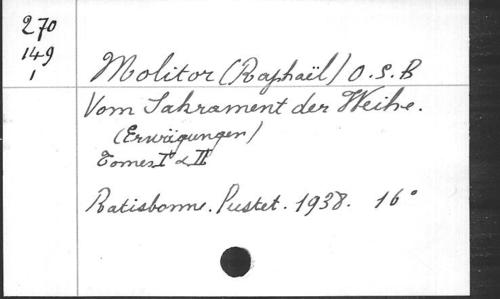 270
149
1
Molitor (Raphaël) O.S.B
Vom Sakrament der Weihe.
(Erwägungen)
Tomes I & II
Ratisbonne. Pustet. 1938. 16°